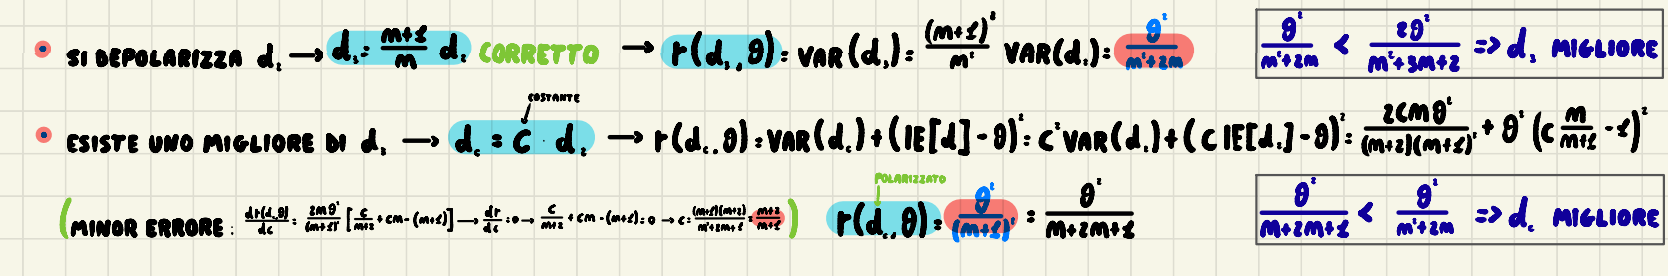 • SI DEPOLARIZZA d₂ → d₃ = \frac{m+1}{m} d₂ CORRETTO → r(d₃, θ) = VAR(d₃) = \frac{(m+1)²}{m²} VAR(d₂) = \frac{θ²}{m²+2m}
\frac{θ²}{m²+2m} < \frac{2θ²}{m²+3m+2} => d₃ MIGLIORE
COSTANTE
• ESISTE UNO MIGLIORE DI d₃ → d_c = C · d₂ → r(d_c, θ) = VAR(d_c) + (IE[d] - θ)² = C² VAR(d₂) + (C IE[d₂] - θ)² = \frac{2Cmθ²}{(m+2)(m+1)²} + θ² (C \frac{m}{m+1} - 1)²
(MINOR ERRORE: \frac{dr(d_c, θ)}{dc} = \frac{2mθ²}{(m+1)²} [\frac{C}{m+2} + cm - (m+1)] → \frac{dr}{dc} = 0 → \frac{C}{m+2} + cm - (m+1) = 0 → c = \frac{(m+1)(m+2)}{m²+2m+1} = \frac{m+2}{m+1})
POLARIZZATO
r(d_c, θ) = \frac{θ²}{(m+1)²} = \frac{θ²}{m+2m+1}
\frac{θ²}{m+2m+1} < \frac{θ²}{m²+2m} => d_c MIGLIORE